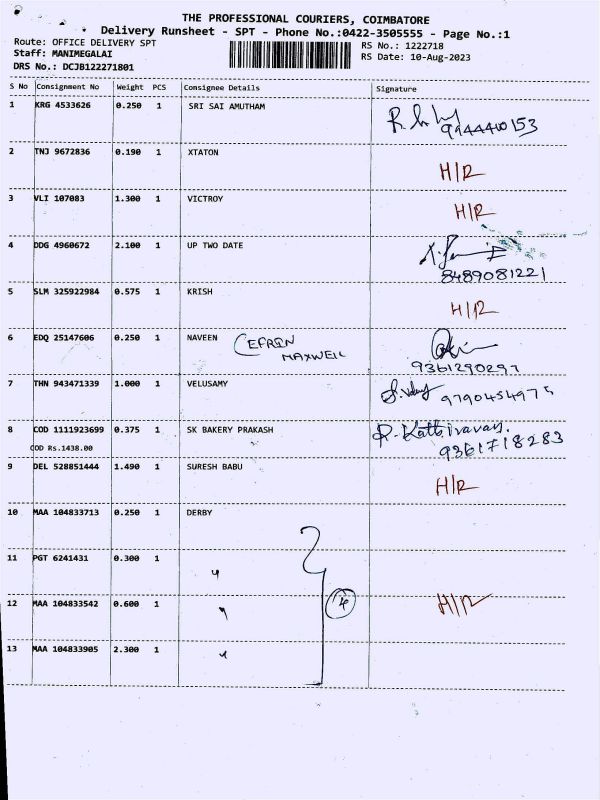 THE PROFESSIONAL COURIERS, COIMBATORE
Delivery Runsheet - SPT - Phone No.:0422-3505555 - Page No.:1
Route: OFFICE DELIVERY SPT
Staff: MANIMEGALAI
DRS No.: DCJB122271801
RS No.: 1222718
RS Date: 10-Aug-2023
S No Consignment No Weight PCS Consignee Details Signature
1 KRG 4533626 0.250 1 SRI SAI AMUTHAM
9944440153
2 TNJ 9672836 0.190 1 XTATON H/R
3 VLI 107083 1.300 1 VICTROY H/R
4 DDG 4960672 2.100 1 UP TWO DATE
8489081221
5 SLM 325922984 0.575 1 KRISH H/R
6 EDQ 25147606 0.250 1 NAVEEN (EFRON
MAXWELL
9361290297
7 THN 943471339 1.000 1 VELUSAMY 9790454975
8 COD 1111923699 0.375 1 SK BAKERY PRAKASH R. Kathiravan.
COD Rs.1438.00 9361718283
9 DEL 528851444 1.490 1 SURESH BABU H/R
10 MAA 104833713 0.250 1 DERBY
11 PGT 6241431 0.300 1 "
12 MAA 104833542 0.600 1 " 4 H/R
13 MAA 104833905 2.300 1 "